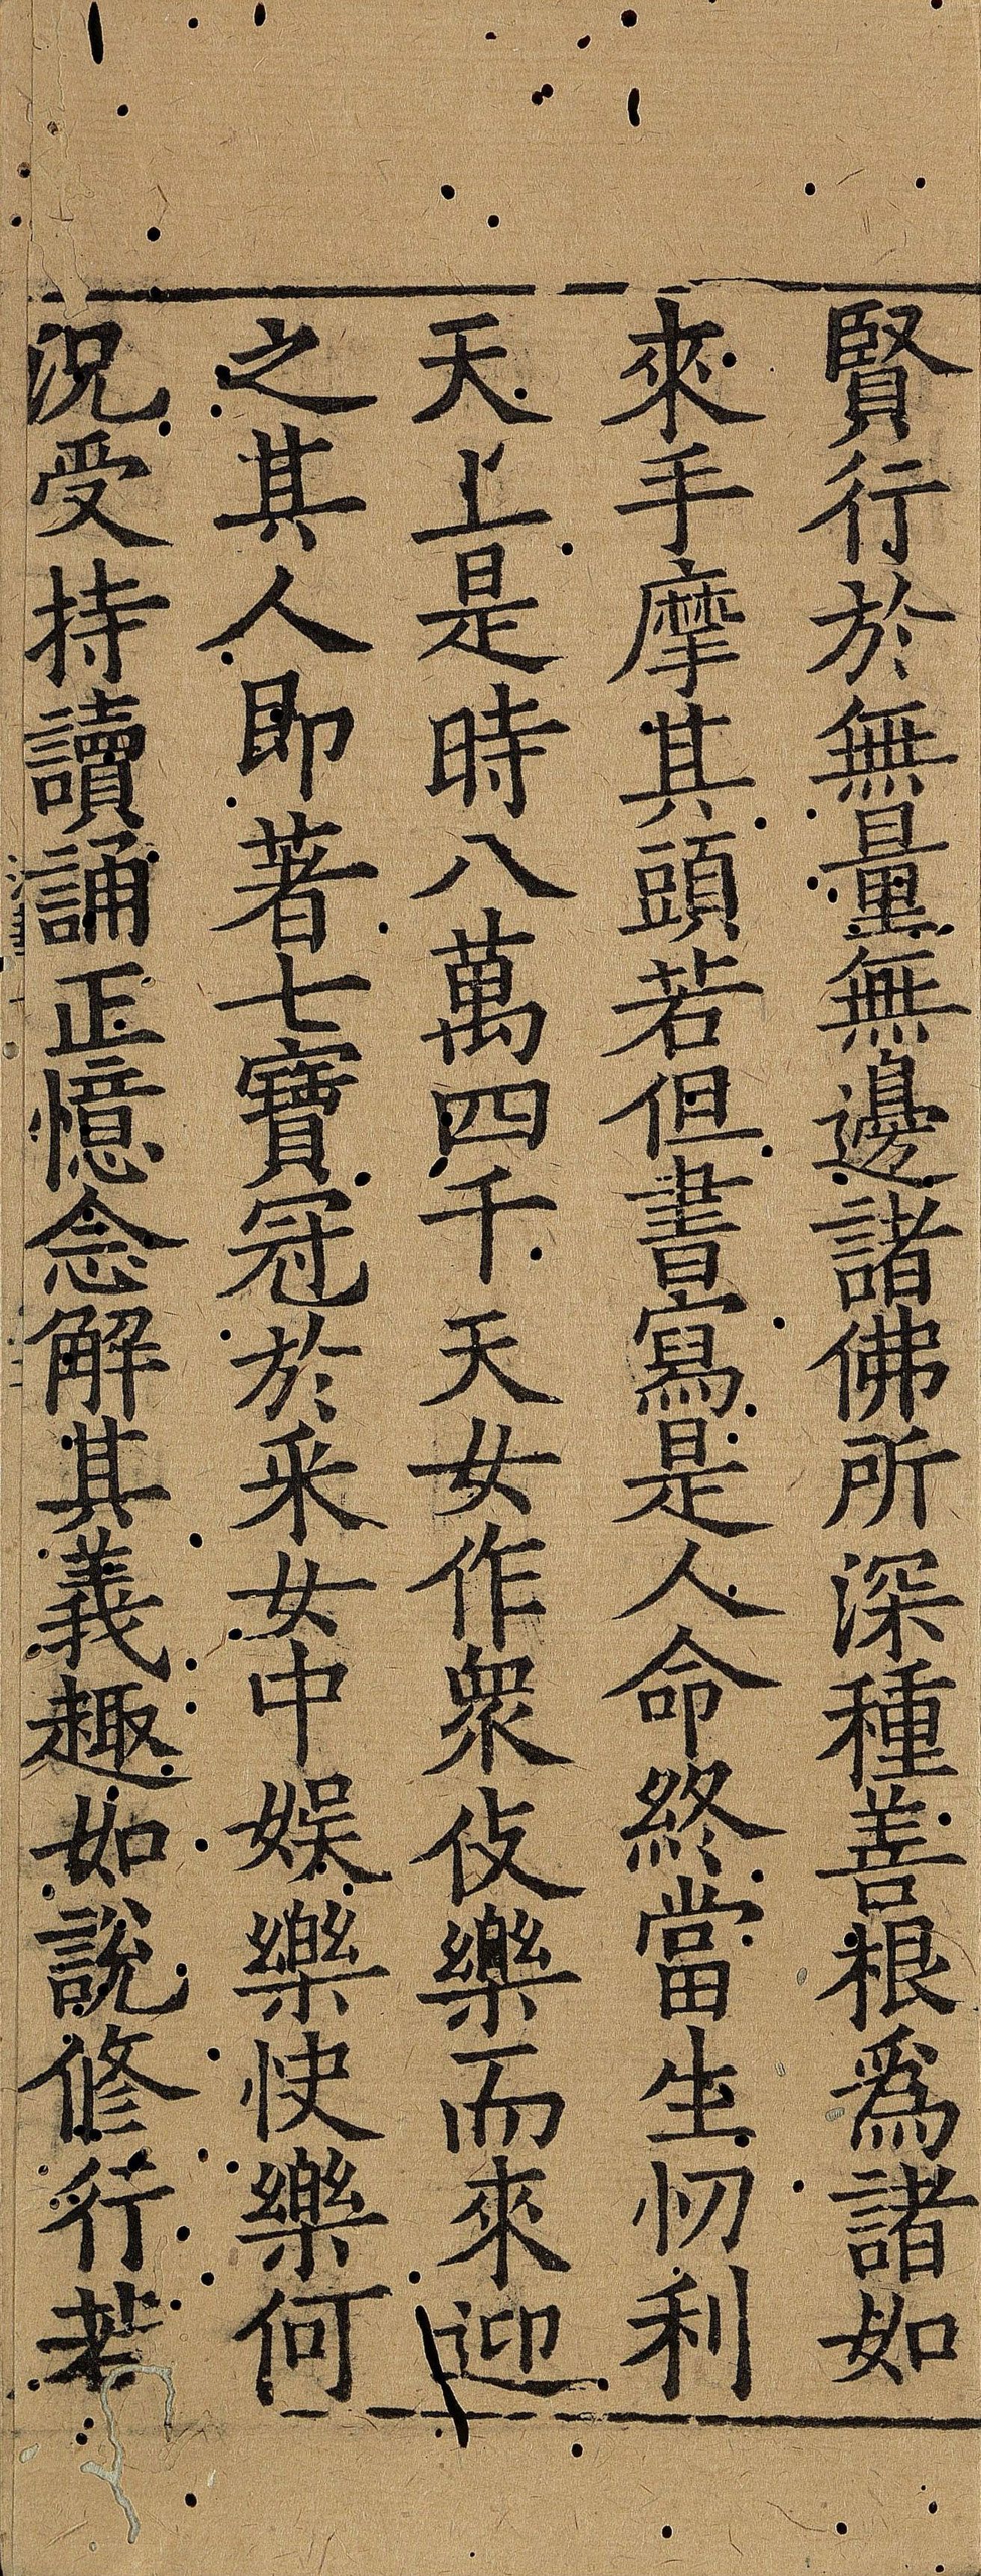 賢行於無量無邊諸佛所深種善根爲諸如
來手摩其頭若但書寫是人命終當生忉利
天上是時八萬四千天女作衆伎樂而來迎
之其人即著七寶冠於采女中娛樂快樂何
況受持讀誦正憶念解其義趣如說修行若